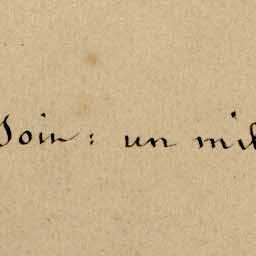 Soin : un mil